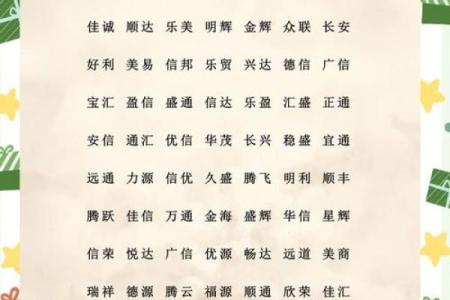 佳诚 顺达 乐美 明辉 金辉 众联 长安
好利 美易 信邦 乐贸 兴达 德信 广信
宝汇 盈信 盛通 信达 乐盈 汇盛 正通
安信 通汇 优信 华茂 长兴 稳盛 宜通
远通 力源 信优 久盛 腾飞 明利 顺丰
腾跃 佳信 万通 金海 盛辉 华信 星辉
信荣 悦达 广信 优源 畅达 远道 美商
瑞祥 德源 腾云 福源 顺通 欣荣 佳汇